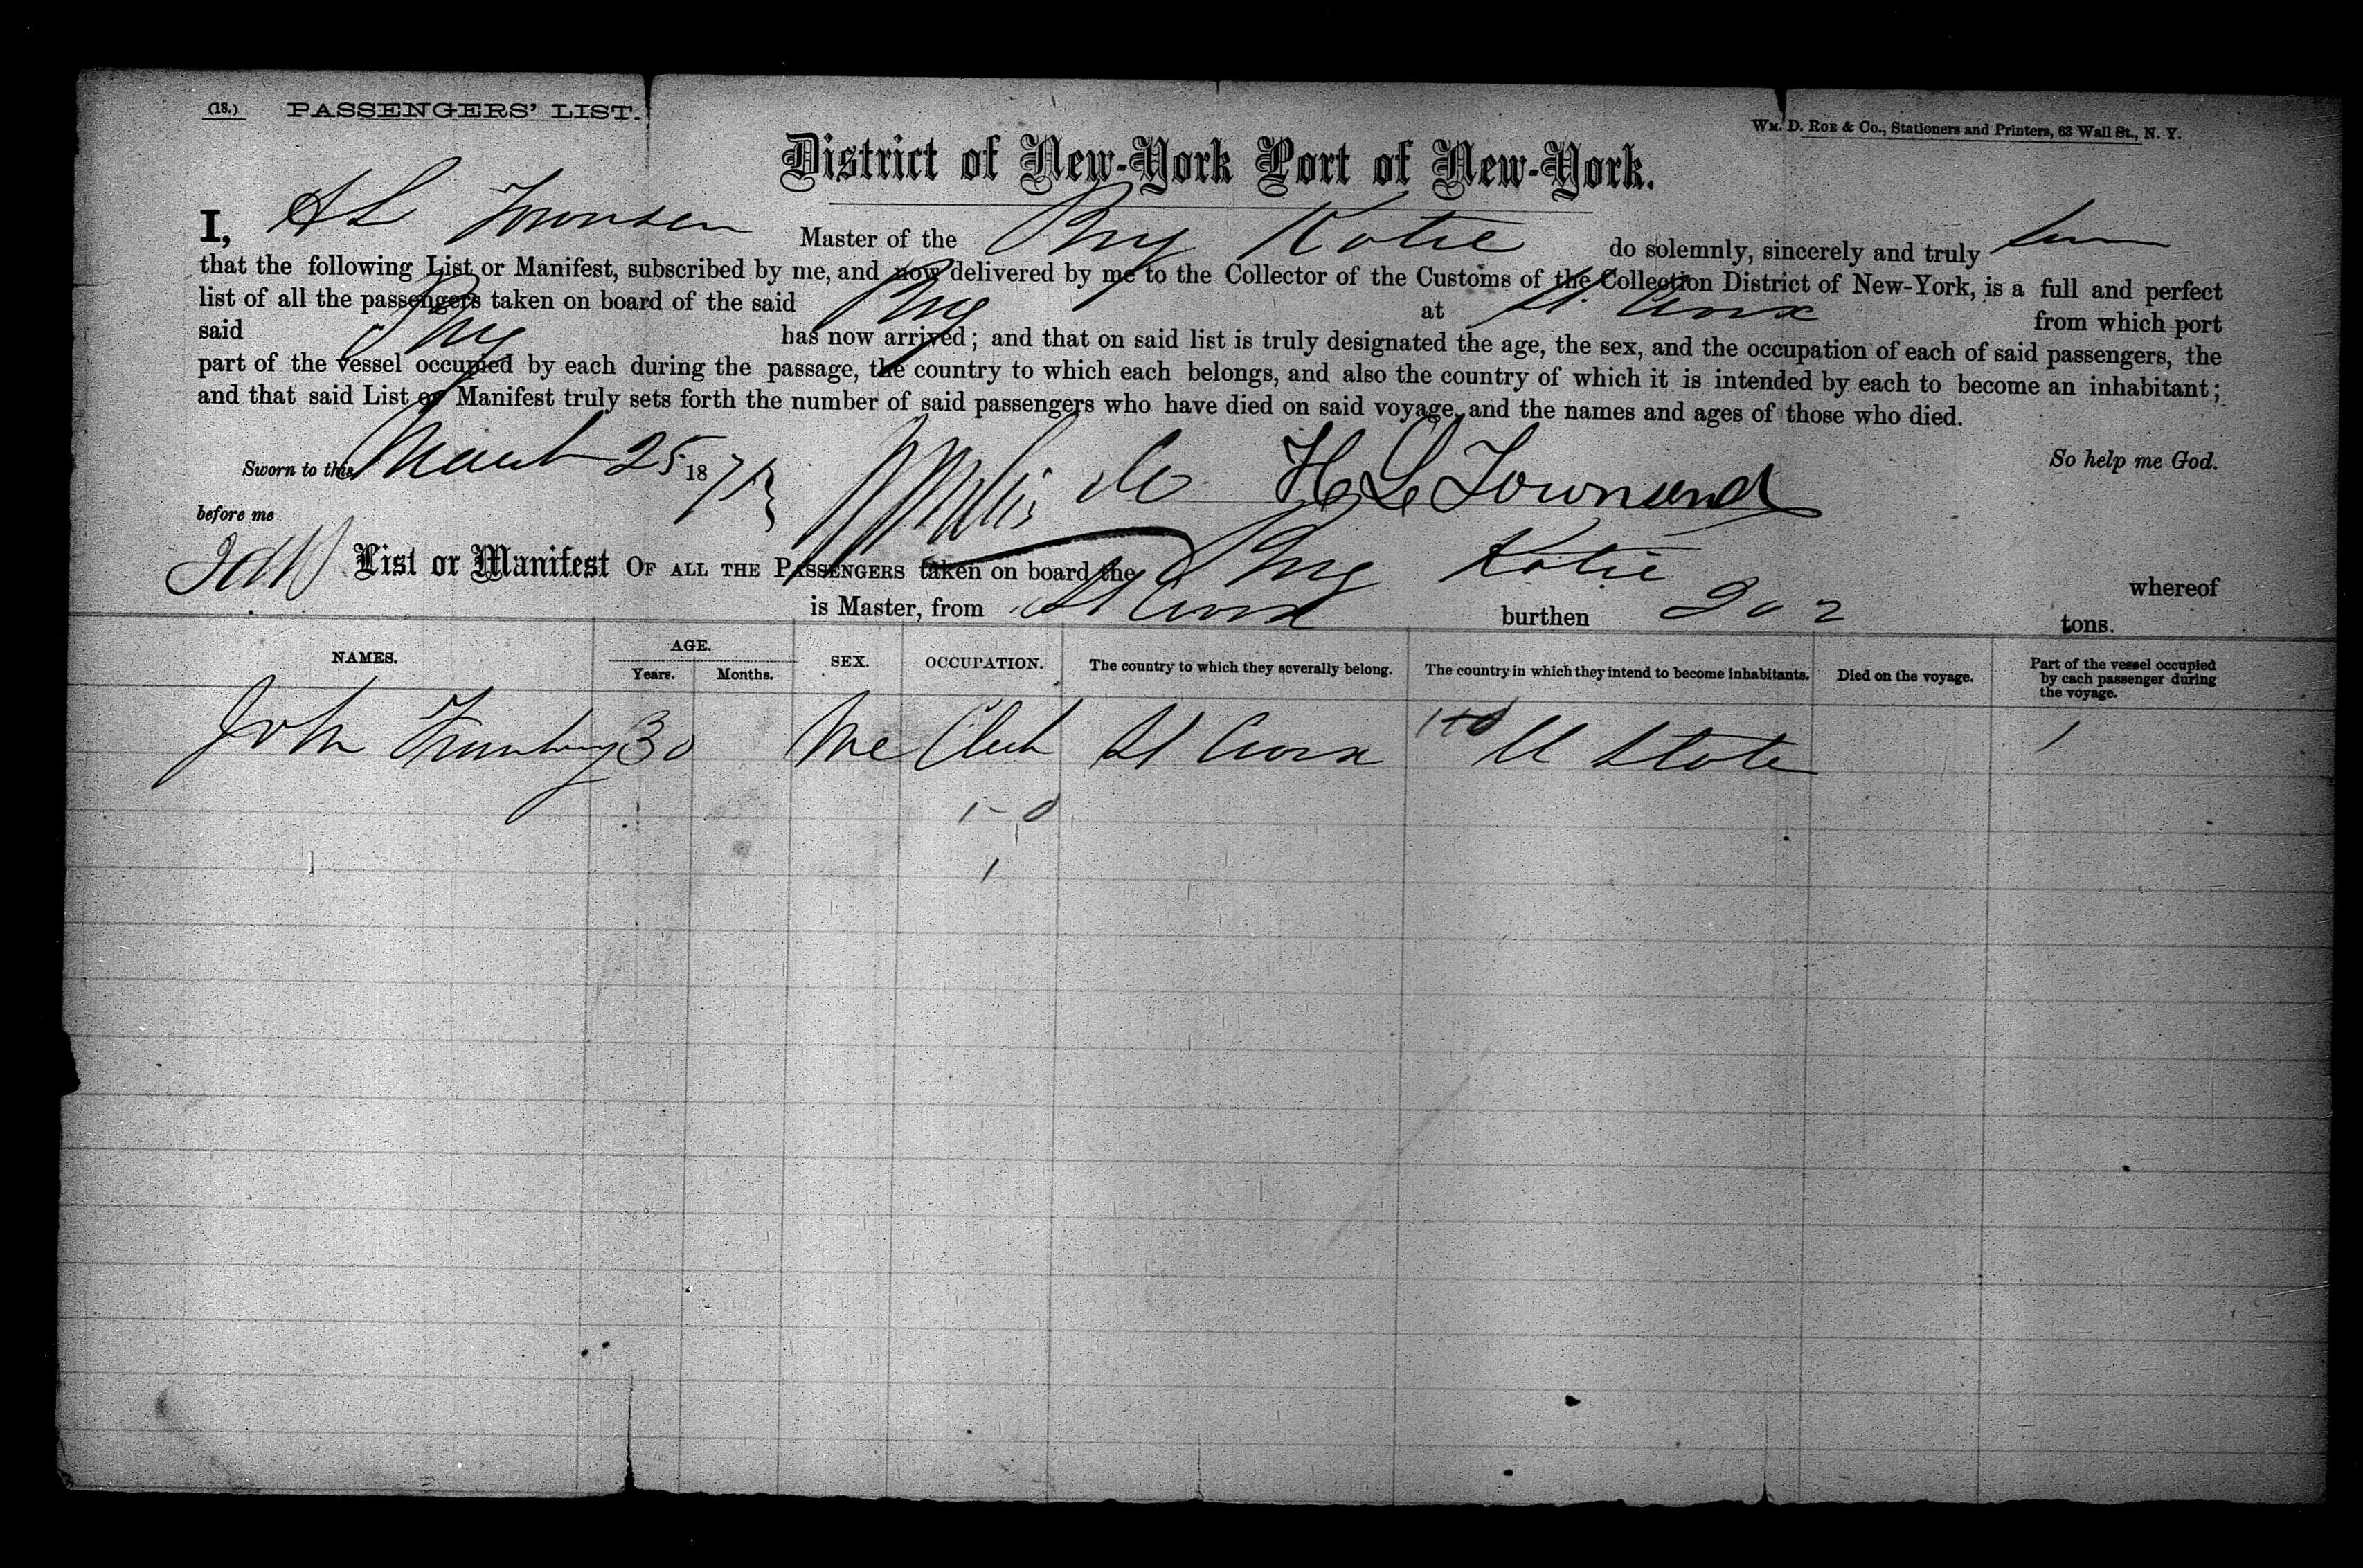 (18.) PASSENGERS' LIST.
WM. D. ROE & CO., Stationers and Printers, 63 Wall St., N. Y.
District of New-York Port of New-York.
I, H L Townsen Master of the Brig Katie do solemnly, sincerely and truly
that the following List or Manifest, subscribed by me, and now delivered by me to the Collector of the Customs of the Collection District of New-York, is a full and perfect
list of all the passengers taken on board of the said Brig at St Croix from which port
said Brig has now arrived; and that on said list is truly designated the age, the sex, and the occupation of each of said passengers, the
part of the vessel occupied by each during the passage, the country to which each belongs, and also the country of which it is intended by each to become an inhabitant;
and that said List or Manifest truly sets forth the number of said passengers who have died on said voyage, and the names and ages of those who died.
So help me God.
Sworn to this March 25 187
before me H L Townsend
List or Manifest OF ALL THE PASSENGERS taken on board the Brig Katie whereof
is Master, from St Croix burthen 202 tons.
NAMES. AGE. Years. Months. SEX. OCCUPATION. The country to which they severally belong. The country in which they intend to become inhabitants. Died on the voyage. Part of the vessel occupied by each passenger during the voyage.
John 30 Me Clerk St Croix U State 1
1-0
1